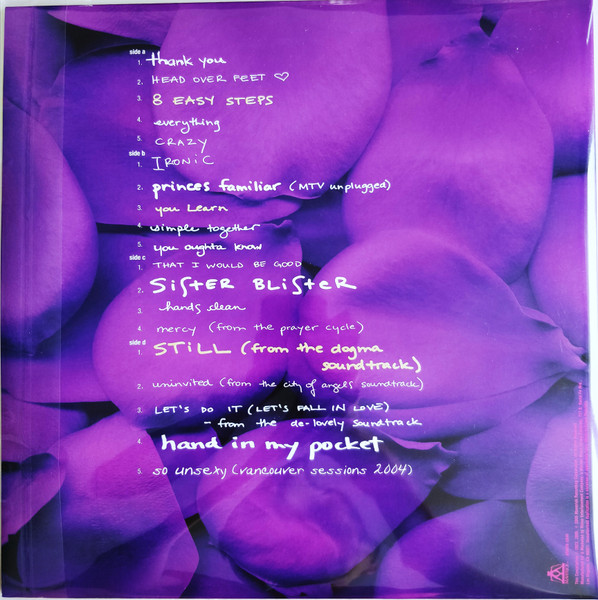 side a
1. thank you
2. HEAD OVER FEET ♡
3. 8 EASY STEPS
4. everything
5. CRAZY
side b
1. IRONiC
2. princes familiar (MTV unplugged)
3. you Learn
4. simple together
5. you oughta know
side c
1. THAT I WOULD BE GOOD
2. SiSTER BLiSteR
3. hands clean
4. mercy (from the prayer cycle)
side d
1. STiLL (from the dogma
soundtrack)
2. uninvited (from the city of angels soundtrack)
3. LET'S DO IT (LET'S FALL IN LOVE)
- from the de-lovely soundtrack
4. hand in my pocket
5. so unsexy (vancouver sessions 2004)